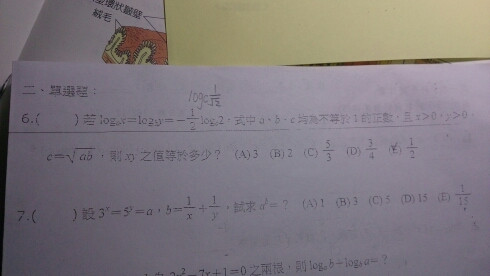 狀皺壁
絨毛
二、單選題：
log_c 1/√2
6.(　　) 若 log_a x = log_b y = -1/2 log_c 2，式中 a、b、c 均為不等於 1 的正數，且 x>0，y>0，
c = √ab，則 xy 之值等於多少？ (A) 3 (B) 2 (C) 5/3 (D) 3/4 (E) 1/2
7.(　　) 設 3^x = 5^y = a，b = 1/x + 1/y，試求 a^b = ？ (A) 1 (B) 3 (C) 5 (D) 15 (E) 1/15
-7x+1=0 之兩根，則 log_a b + log_b a = ？